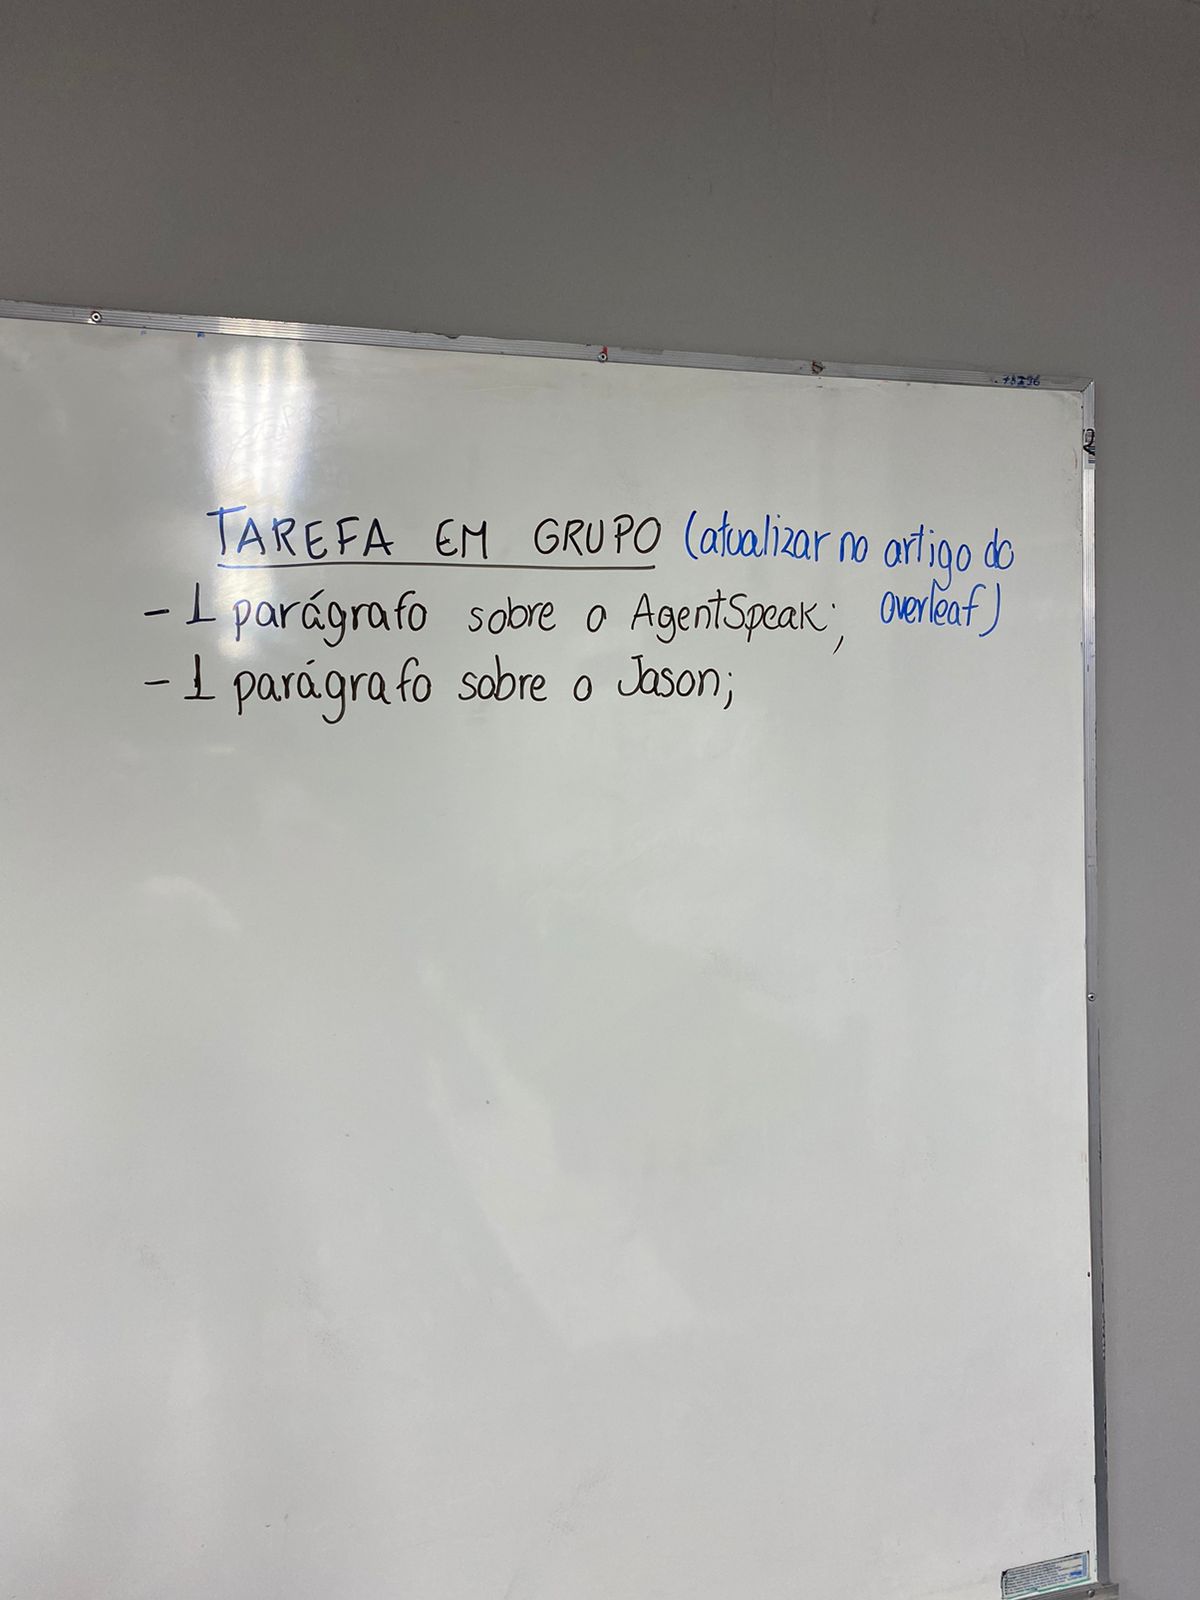 TAREFA EM GRUPO (atualizar no artigo do
overleaf)
- 1 parágrafo sobre o AgentSpeak;
- 1 parágrafo sobre o Jason;